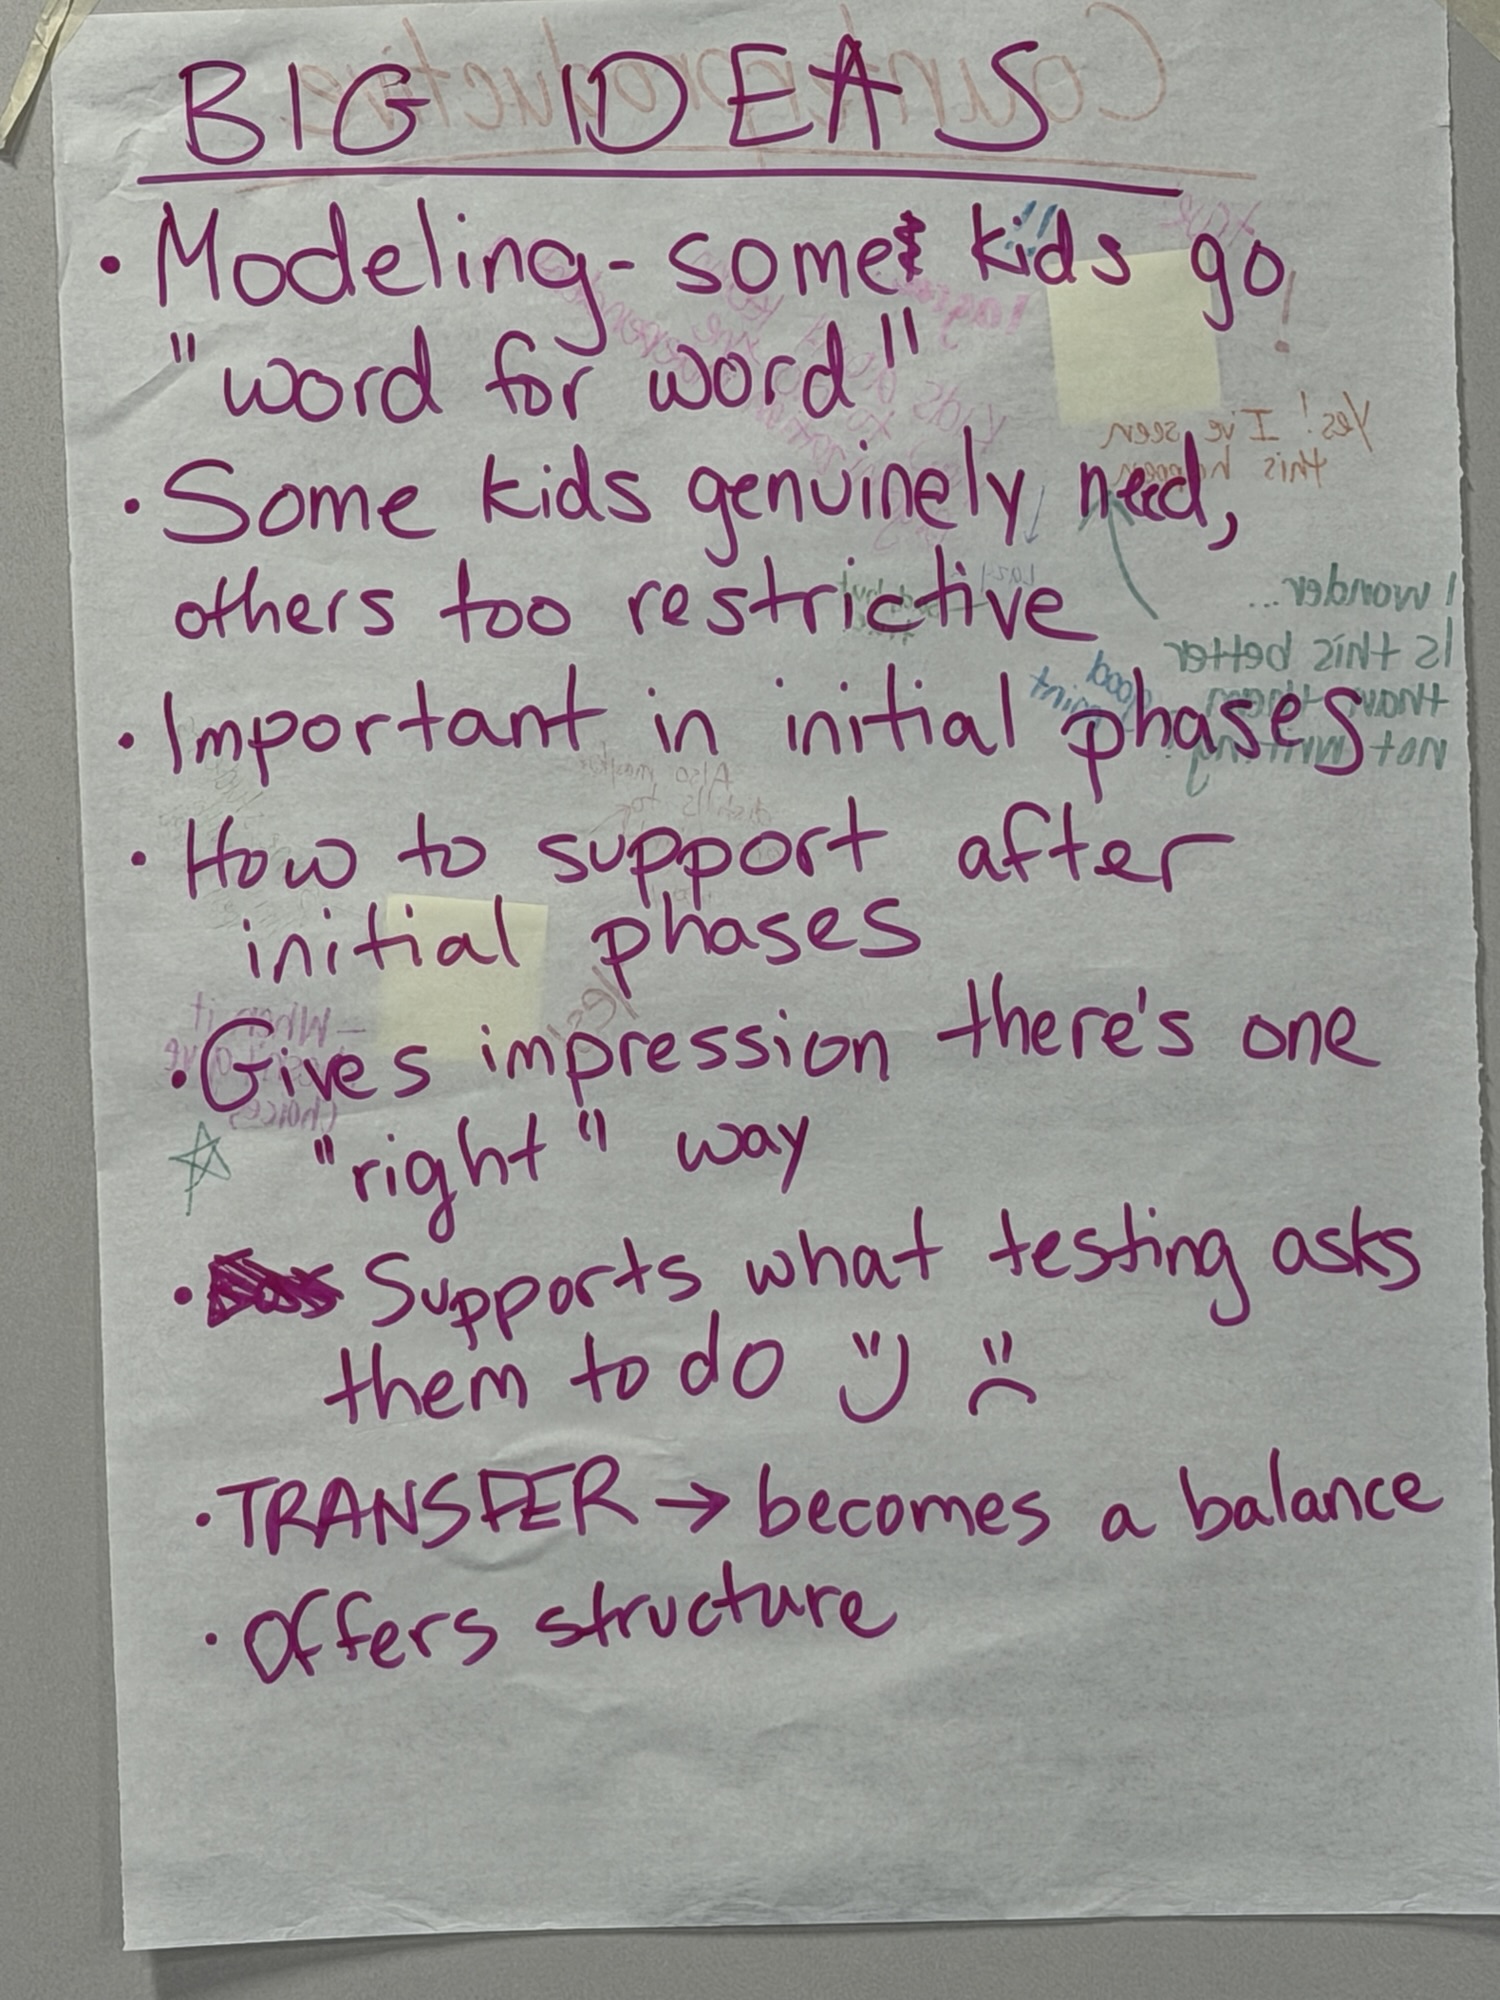 BIG IDEAS
• Modeling - some kids go
"word for word"
• Some kids genuinely need,
others too restrictive
• Important in initial phases
• How to support after
initial phases
• Gives impression there's one
"right" way
• Supports what testing asks
them to do
• TRANSFER → becomes a balance
• Offers structure
Counterproductive
Yes! I've seen
this happen
I wonder...
Is this better
than them
not writing?
Good
point
Yes!
- When it
choices